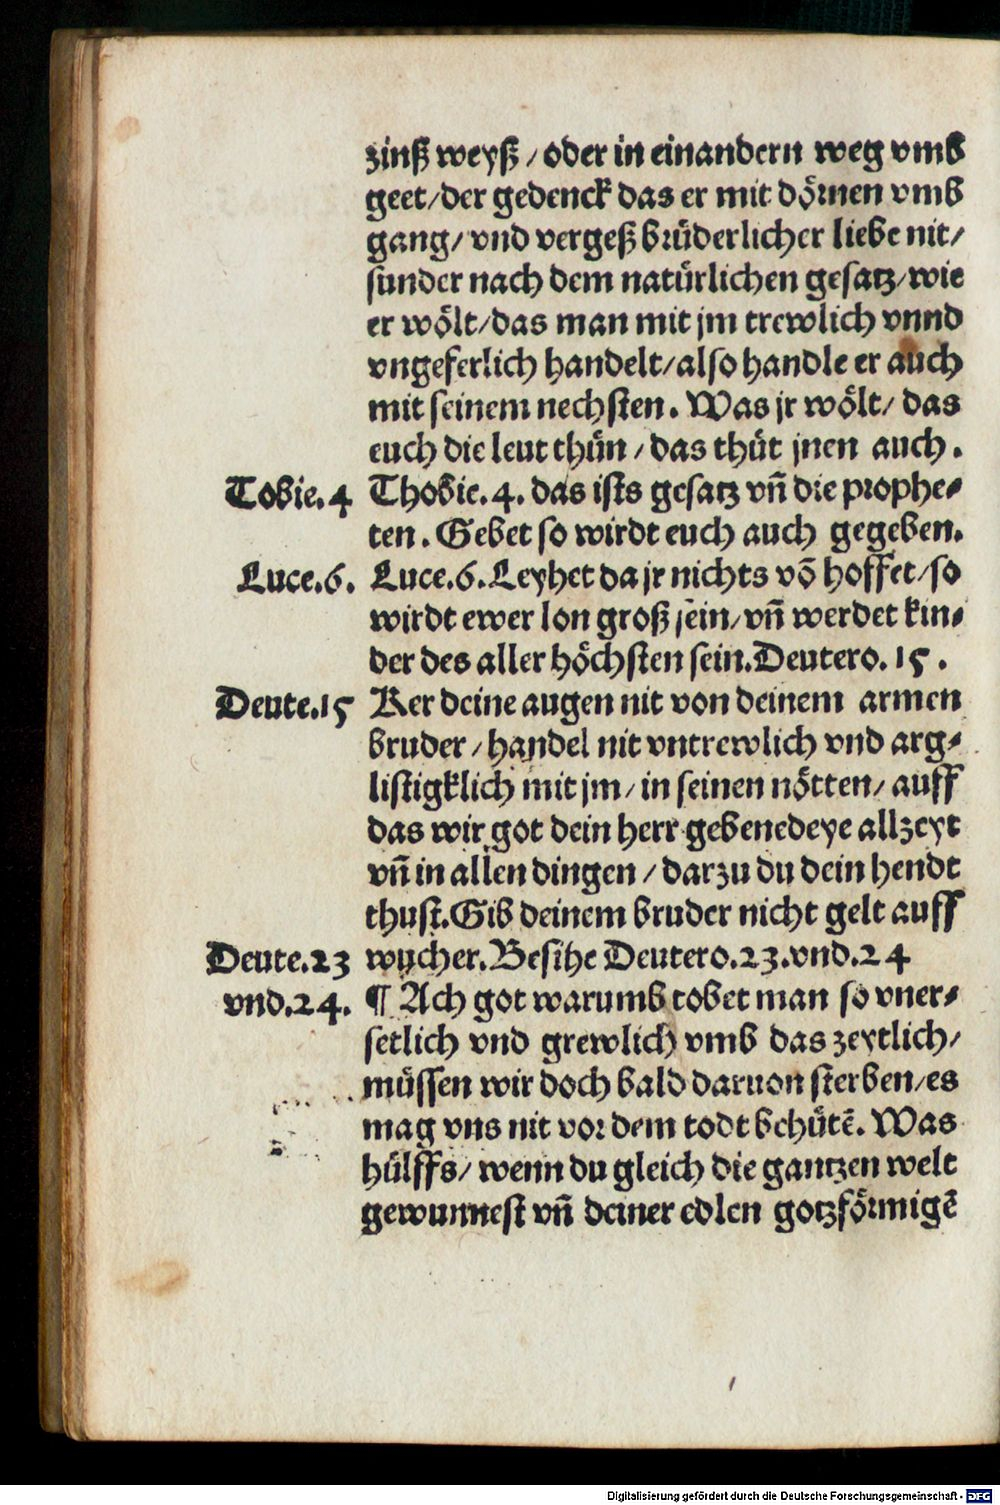 zinß weyß / oder in einandern weg vmb
geet / der gedenck das er mit dörnen vmb
gang / vnd vergeß brüderlicher liebe nit /
sunder nach dem natürlichen gesatz / wie
er wölt / das man mit jm trewlich vnnd
vngeferlich handelt / also handle er auch
mit seinem nechsten. Was jr wölt / das
euch die leut thün / das thüt jnen auch.
Tobie.4 Thobie.4. das ists gesatz vñ die prophe⸗
ten. Gebet so wirdt euch auch gegeben.
Luce.6. Luce.6. Leyhet da jr nichts vō hoffet / so
wirdt ewer lon groß sein / vñ werdet kin⸗
der des aller höchsten sein. Deutero. 15.
Deute.15 Ker deine augen nit von deinem armen
bruder / handel nit vntrewlich vnd arg⸗
listigklich mit jm / in seinen nötten / auff
das wir got dein herr gebenedeye allzeyt
vñ in allen dingen / darzu du dein hendt
thust. Gib deinem bruder nicht gelt auff
Deute.23 wucher. Besihe Deutero.23.vnd.24
vnd.24. ¶ Ach got warumb tobet man so vner⸗
setlich vnd grewlich vmb das zeytlich /
müssen wir doch bald daruon sterben / es
mag vns nit vor dem todt behütē. Was
hülffs / wenn du gleich die gantzen welt
gewunnest vñ deiner edlen gotzförmigē
Digitalisierung gefördert durch die Deutsche Forschungsgemeinschaft - DFG